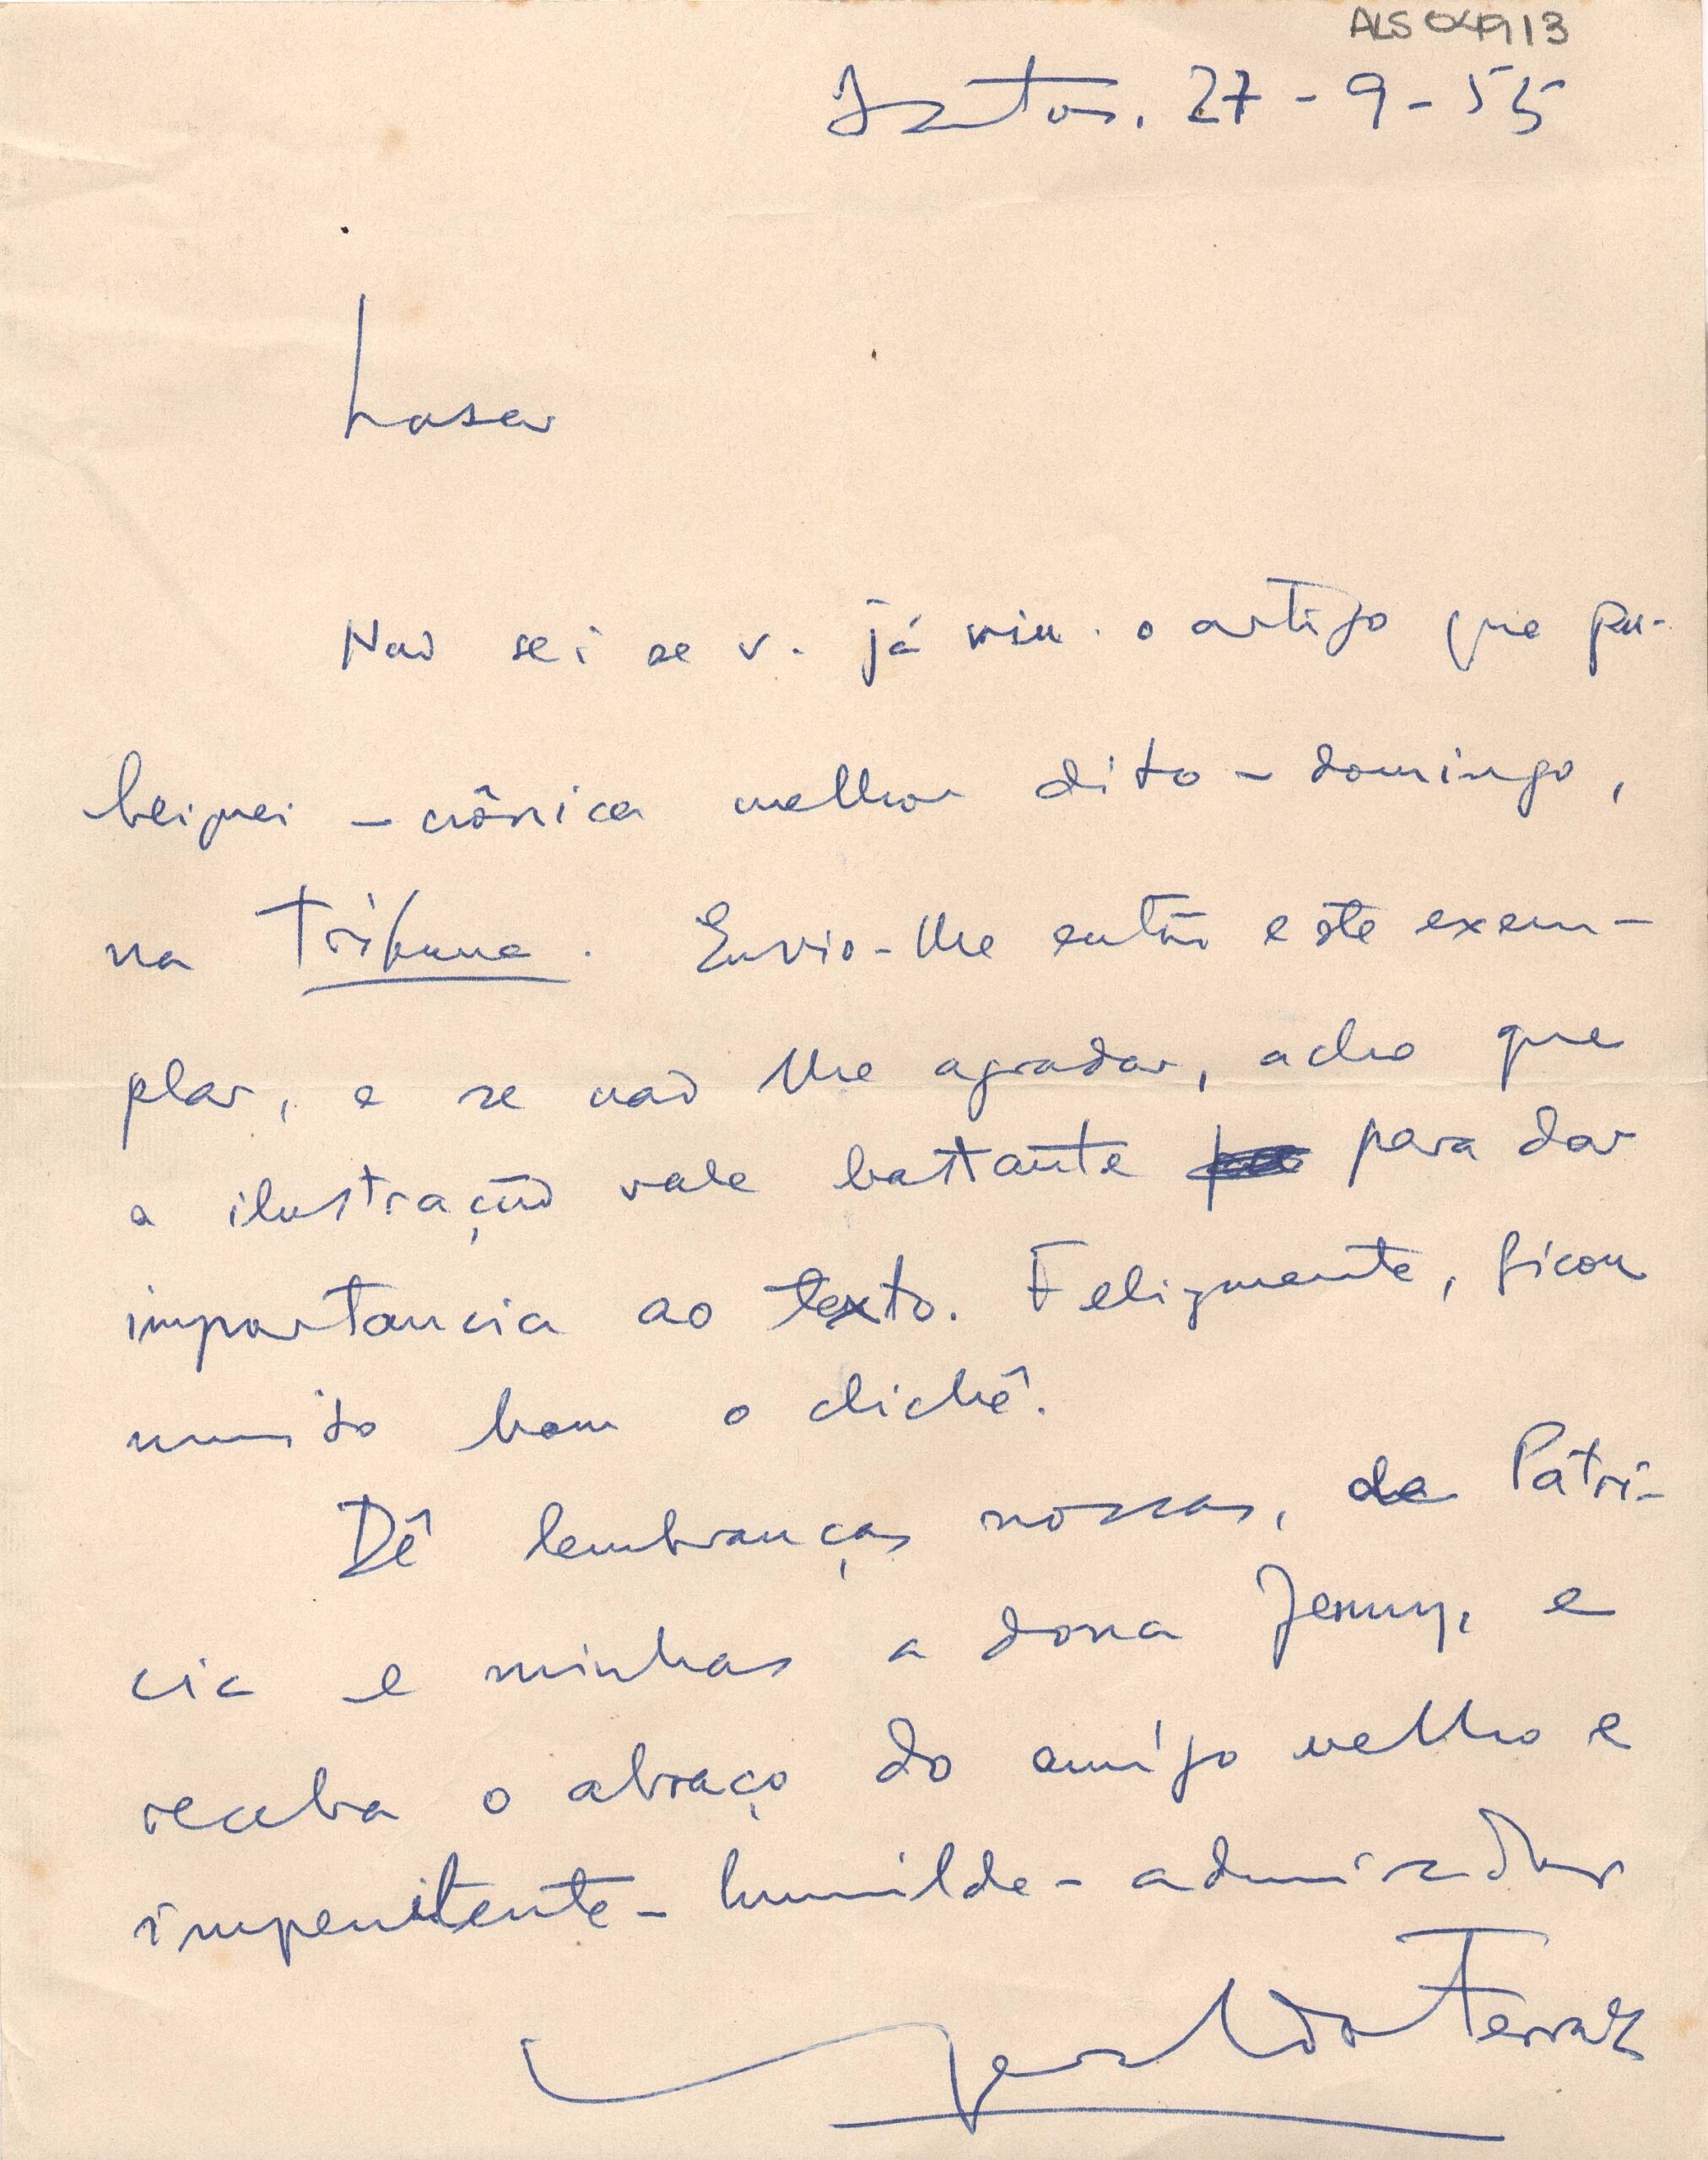 ALS 04913
Santos, 27-9-55
Lasar
Não sei se v. já viu o artigo que pu-
bliquei - crônica melhor dito - domingo,
na Tribuna. Envio-lhe então este exem-
plar, e se não lhe agradar, acho que
a ilustração vale bastante para dar
importancia ao texto. Felizmente, ficou
muito bom o clichê.
Dê lembranças nossas, de Patri-
cia e minhas a dona Jenny, e
receba o abraço do amigo velho e
impenitente - humilde - admirador
Geraldo Ferraz